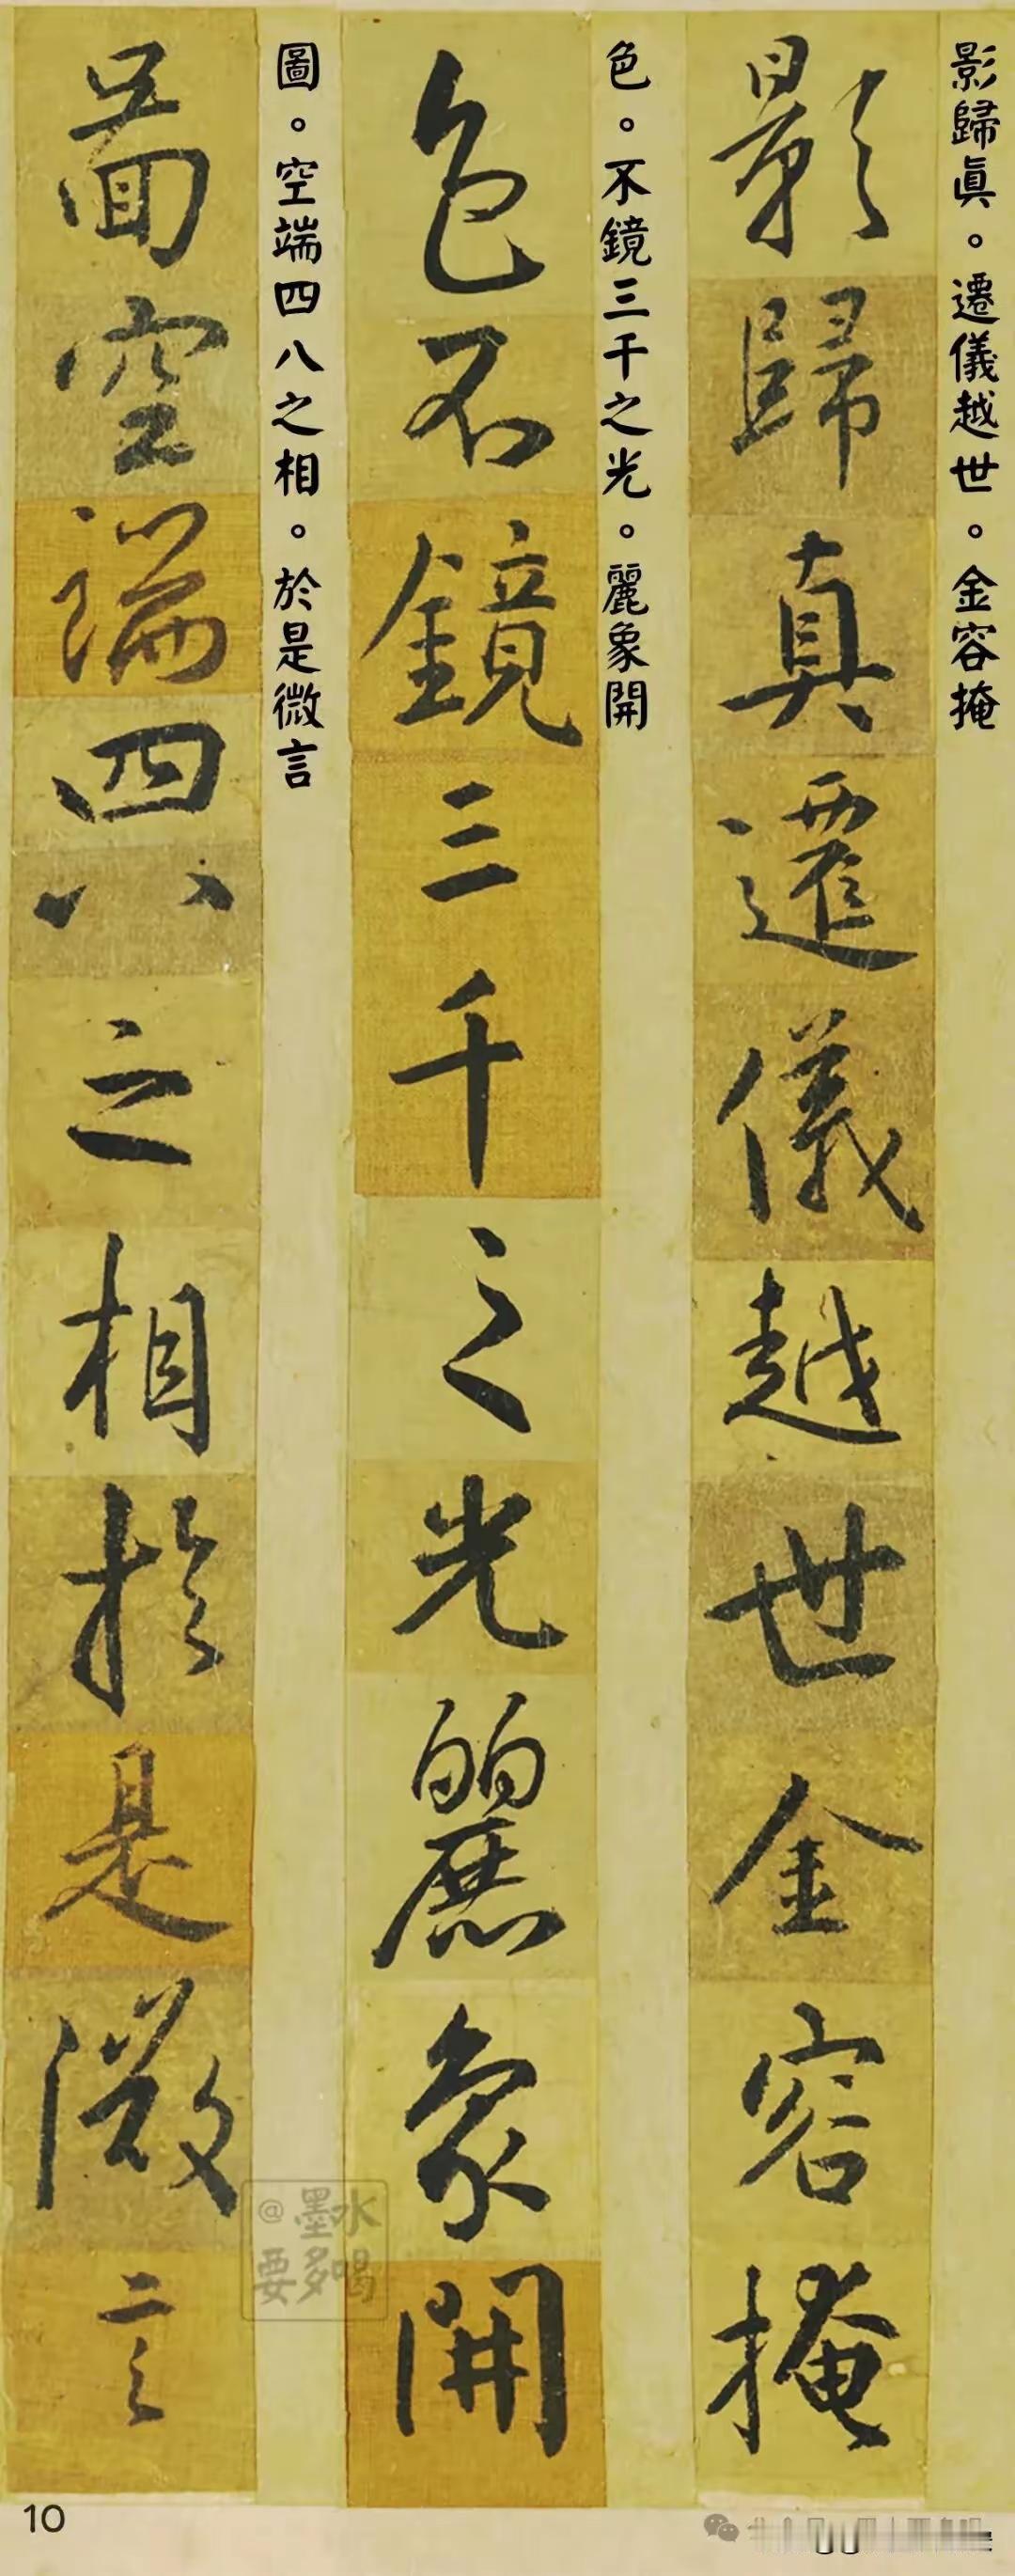 影歸眞。遷儀越世。金容掩
影歸真遷儀越世金容掩
色。不鏡三千之光。麗象開
色不鏡三千之光麗象開
圖。空端四八之相。於是微言
啚空端四八之相於是微言
@墨水
要多喝
10